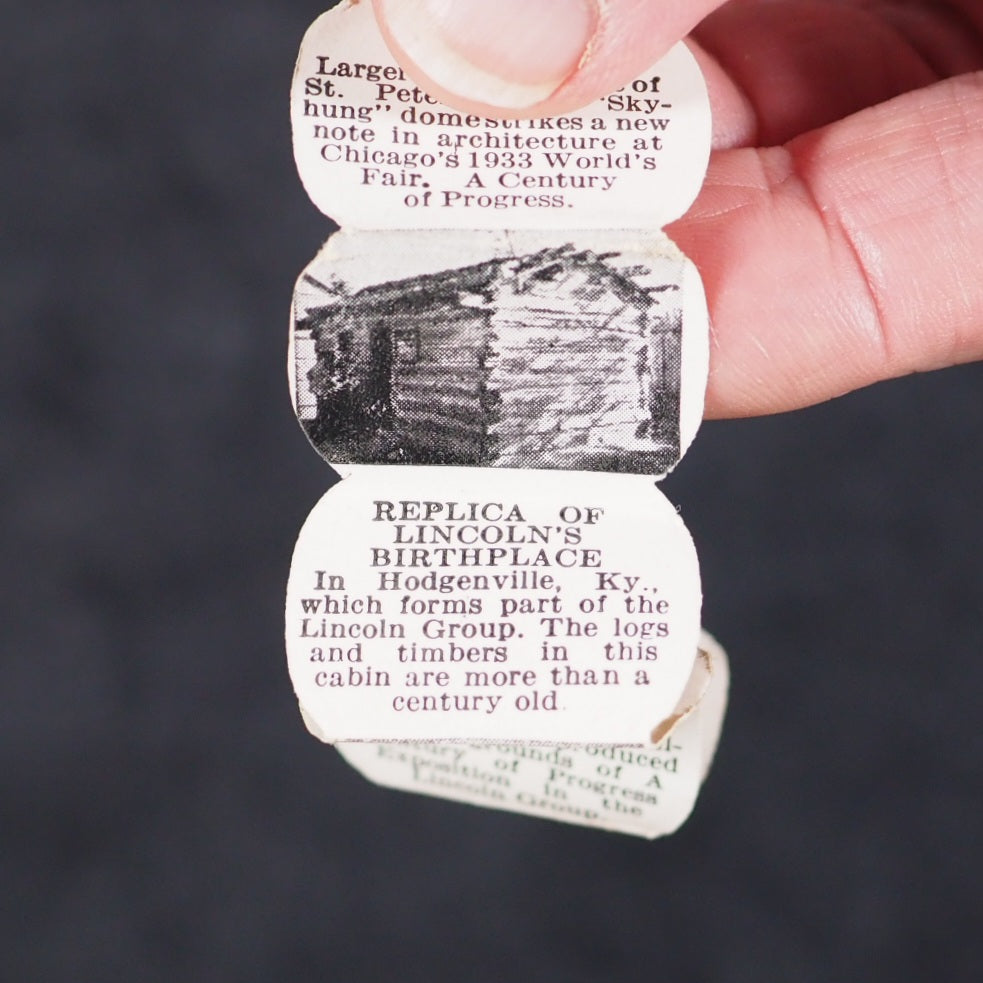 Larger of
St. Pete "Sky-
hung" dome strikes a new
note in architecture at
Chicago's 1933 World's
Fair. A Century
of Progress.
REPLICA OF
LINCOLN'S
BIRTHPLACE
In Hodgenville, Ky.,
which forms part of the
Lincoln Group. The logs
and timbers in this
cabin are more than a
century old.
grounds of A
of Progress
Exposition in the
Lincoln Group.